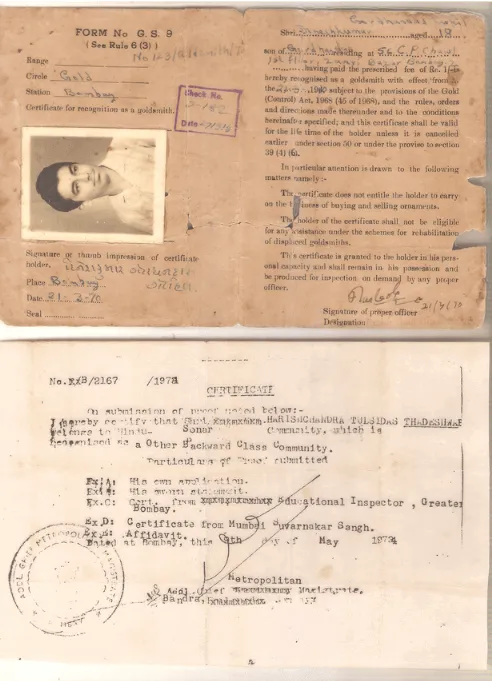 FORM No G. S. 9
( See Rule 6 (3) )
Range
Circle Gold
Station Bombay
Certificate for recognition as a goldsmith.
Check No.
Date
Signature or thumb impression of certificate
holder.
Place Bombay
Date 21-
Seal
Shri aged 18
son of residing at 56 C.P. Chawl
1st floor, Bombay 2
having paid the prescribed fee of Re. 1/- is
hereby recognised as a goldsmith with effect from
the subject to the provisions of the Gold
(Control) Act, 1968 (45 of 1968), and the rules, orders
and directions made thereunder and to the conditions
hereinafter specified; and this certificate shall be valid
for the life time of the holder unless it is cancelled
earlier under section 50 or under the proviso to section
39 (4)
In particular attention is drawn to the following
matters namely :-
The certificate does not entitle the holder to carry
on the business of buying and selling ornaments.
The holder of the certificate shall not be eligible
for any assistance under the schemes for rehabilitation
of displaced goldsmiths.
This certificate is granted to the holder in his pers-
onal capacity and shall remain in his possession and
be produced for inspection on demand by any proper
officer.
Signature of proper officer
Designation
No. /2167 /197
CERTIFICATE
On submission of proof noted below:-
I hereby certify that Shri. HARISHCHANDRA TULSIDAS THADESHWAR
belongs to Hindu- Sonar Community, which is
Recognised as a Other Backward Class Community.
Particulars of Proof submitted
Ex:A: His own application.
His sworn statement.
Ex.C: Cert. from Educational Inspector , Greater
Bombay.
Ex.D: Certificate from Mumbai Suvarnakar Sangh.
Affidavit.
Dated at Bombay, this day of May 197
Metropolitan
Addl. Chief Magistrate.
Bandra,
ADDL CHIEF METROPOLITAN MAGISTRATE